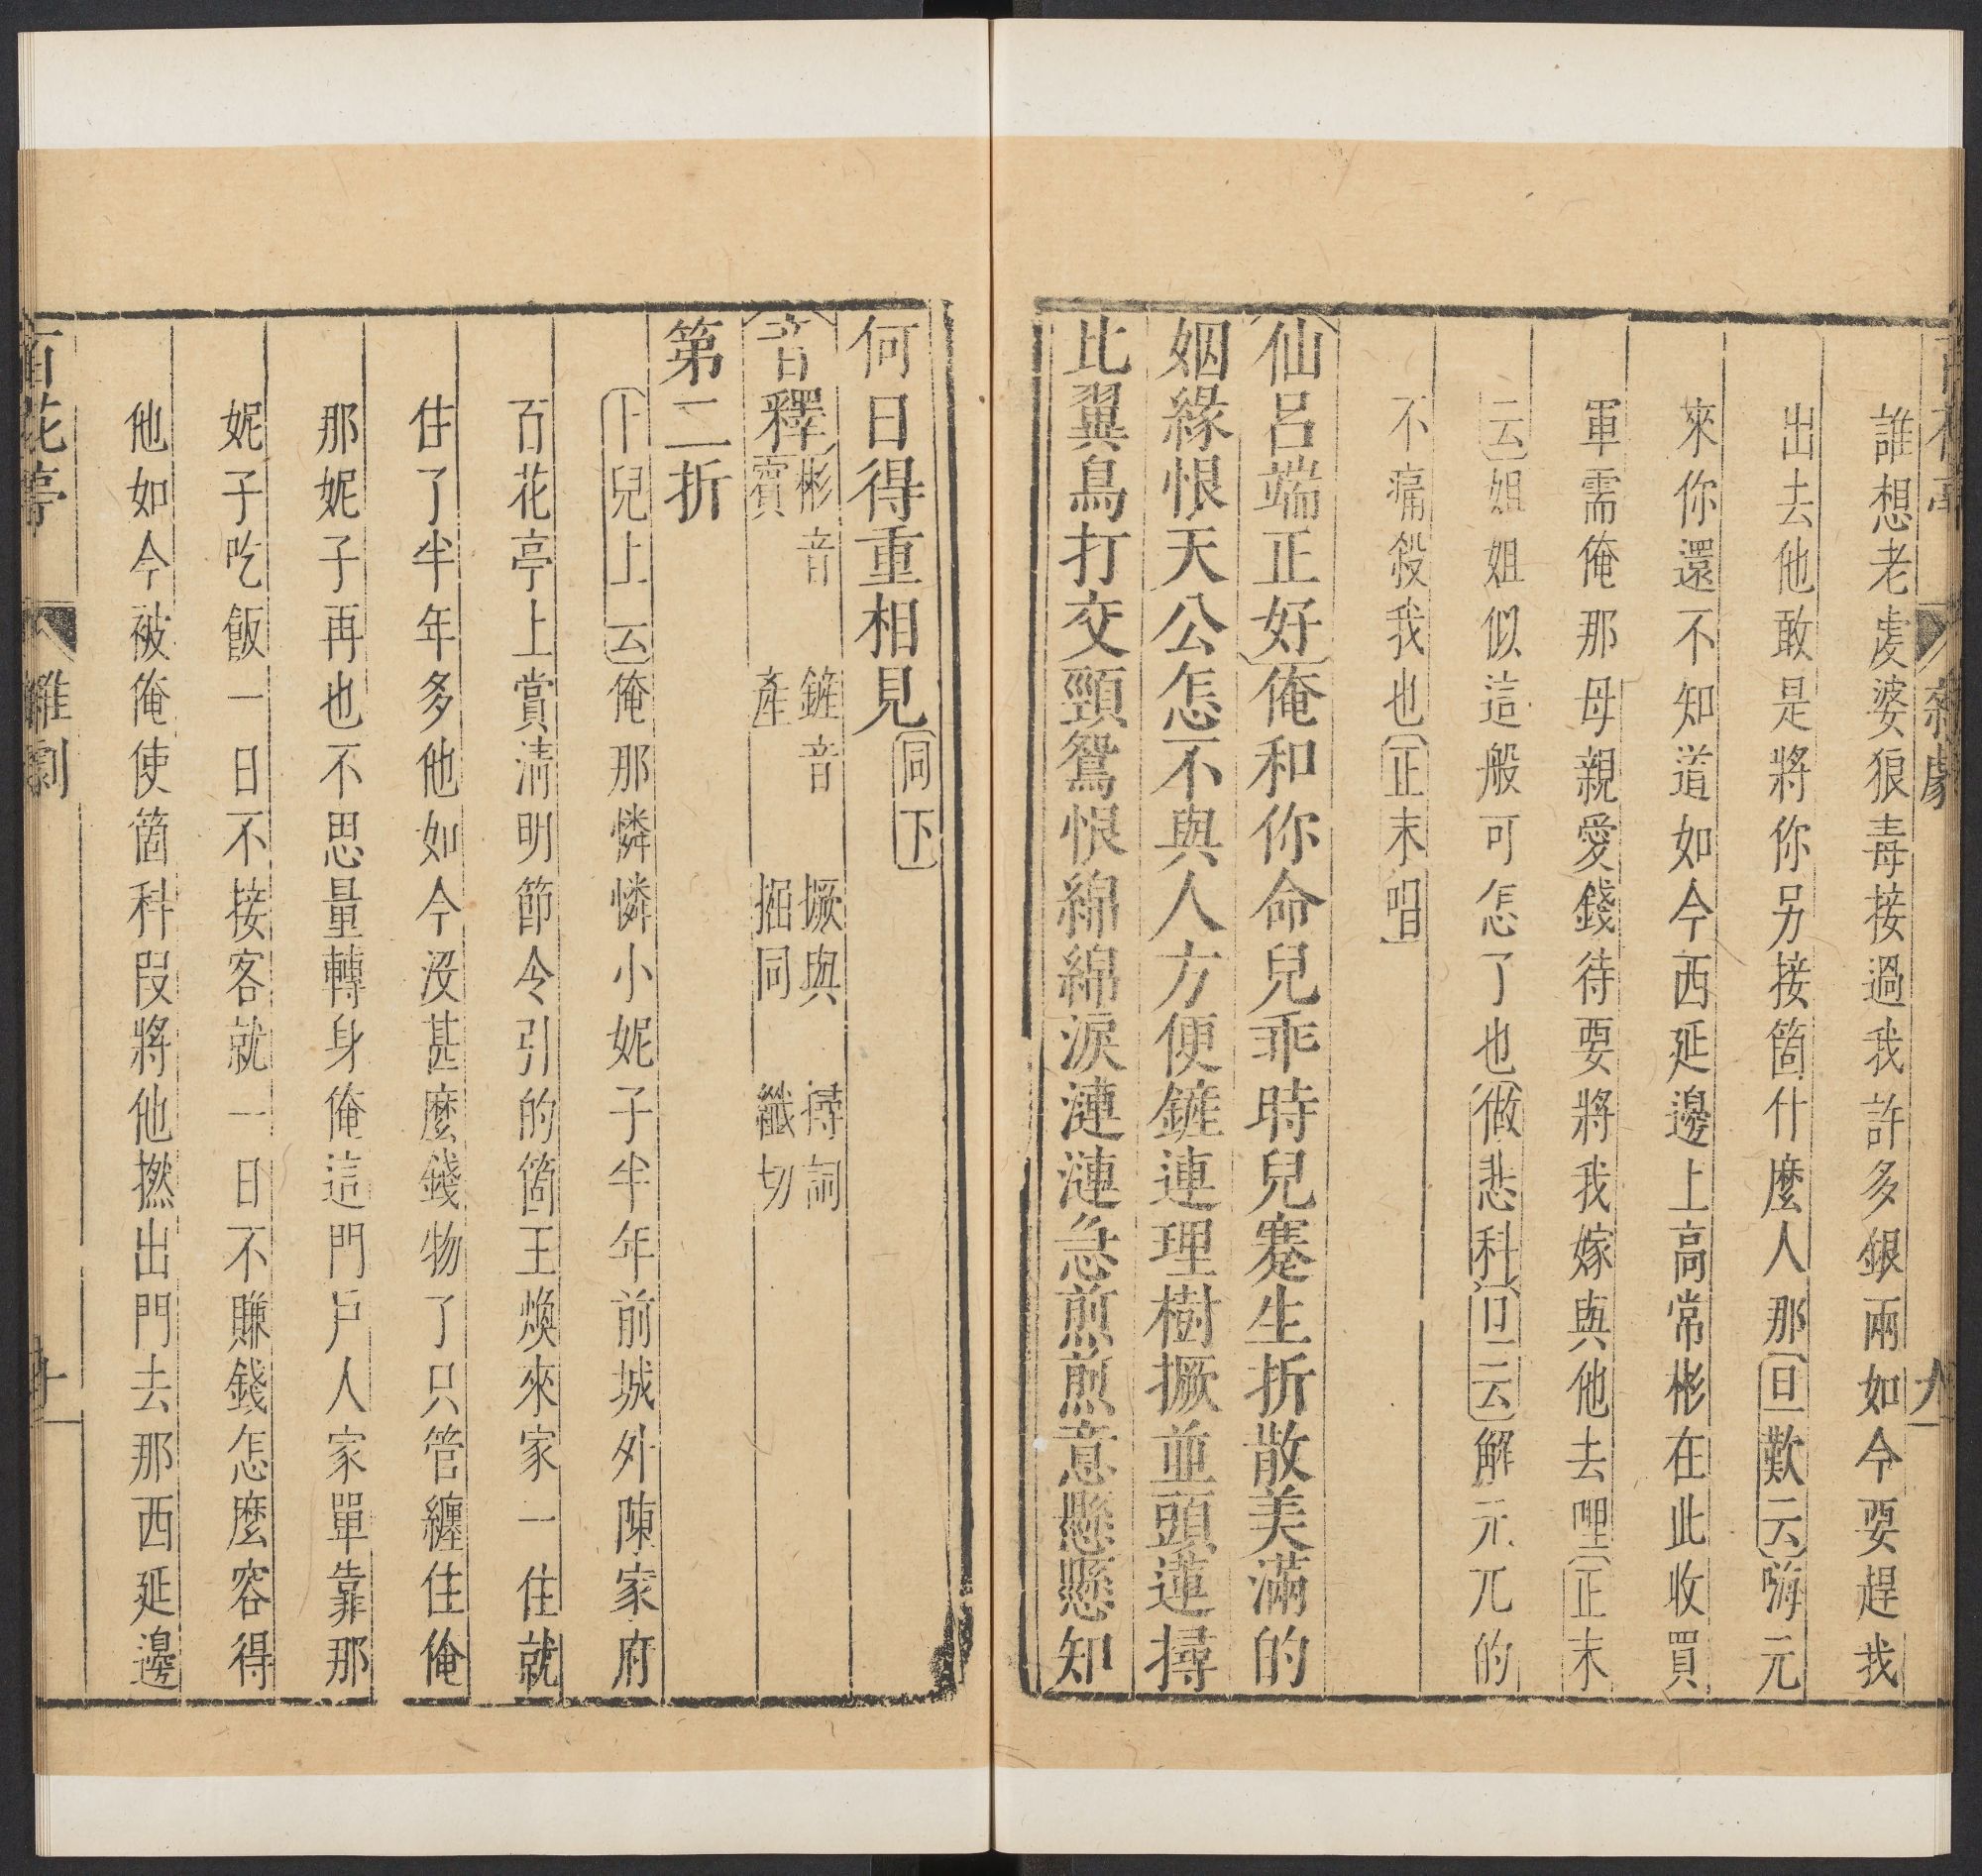 百花亭 雜劇 九
誰想老虔婆狠毒接過我許多銀兩如今要趕我
出去他敢是將你另接箇什麼人那〔旦歎云〕嗨元
來你還不知道如今西延邊上高常彬在此收買
軍需俺那母親愛錢待要將我嫁與他去哩〔正末
云〕姐姐似這般可怎了也〔做悲科〕〔旦云〕解元兀的
不痛殺我也〔正末唱〕
〔仙呂端正好〕俺和你命兒乖時兒蹇生折散美滿的
姻緣恨天公怎不與人方便鏟連理樹撅並頭蓮撏
比翼鳥打交頸鴛恨綿綿綿淚漣漣急煎煎意懸懸知
何日得重相見〔同下〕
〔音釋 彬音賓 鏟音產 撅與掘同 撏詞纖切
第二折
〔卜兒上云〕俺那憐憐小妮子半年前城外陳家府
百花亭上賞清明節令引的箇王煥來家一住就
住了半年多他如今沒甚麼錢物了只管纏住俺
那妮子再也不思量轉身俺這門戶人家單靠那
妮子吃飯一日不接客就一日不賺錢怎麼容得
他如今被俺使箇科段將他撚出門去那西延邊
百花亭 雜劇 十